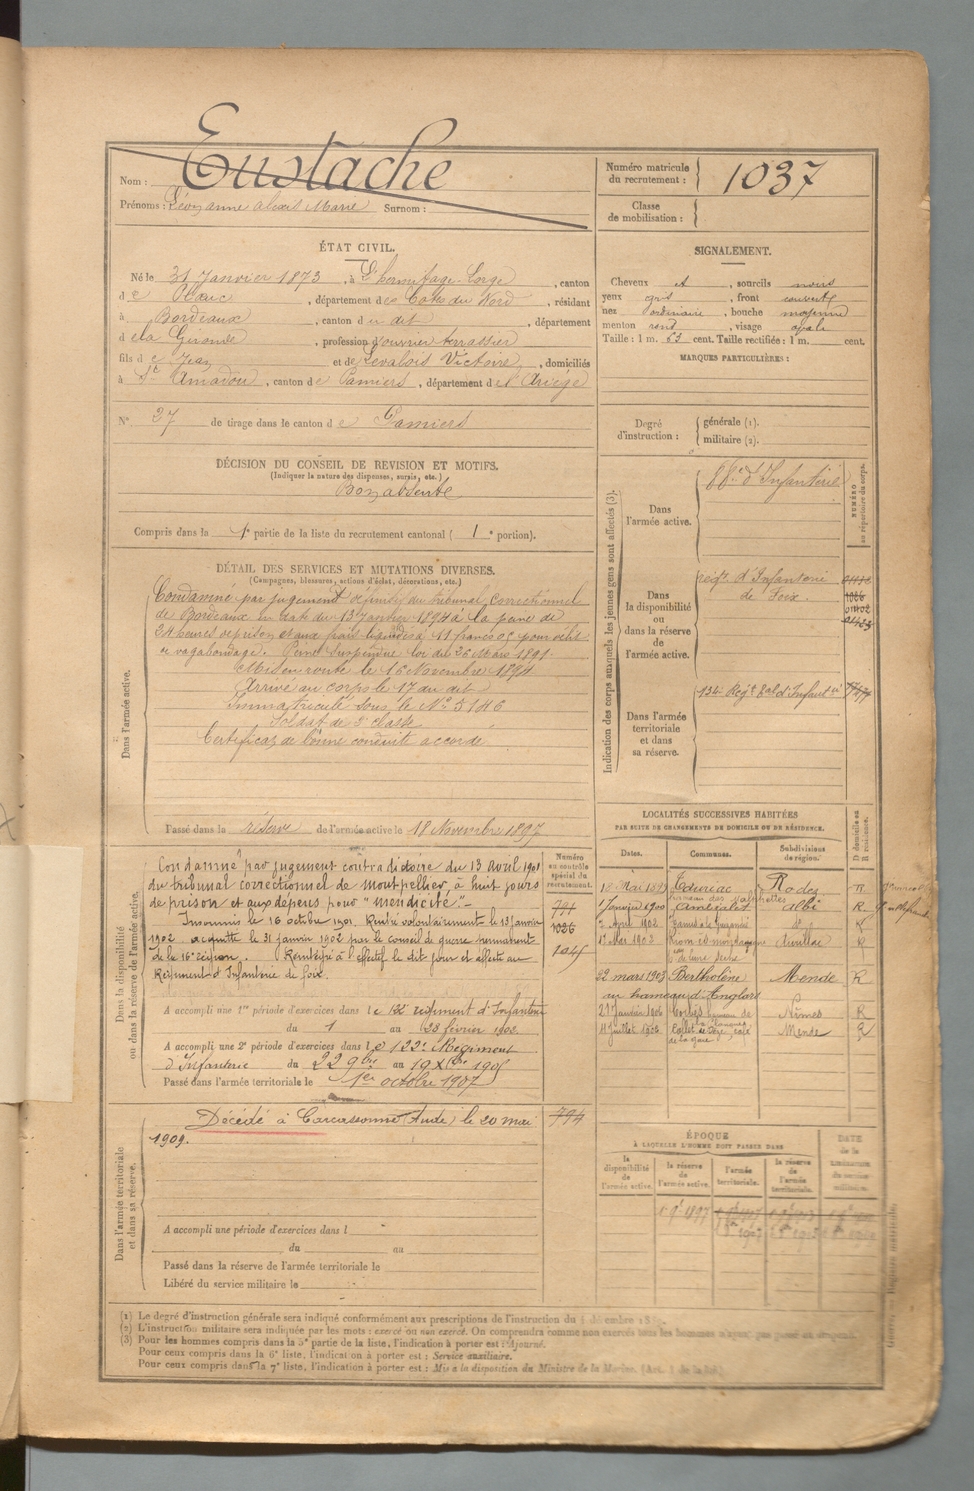 Nom : Eustache
Prénoms : Léon anne alexis Marie Surnom :
Numéro matricule du recrutement : 1037
Classe de mobilisation :
ÉTAT CIVIL.
Né le 31 Janvier 1873, à L'hermitage-Lorge, canton
de Plœuc, département des Côtes du Nord, résidant
à Bordeaux, canton du dit, département
de la Gironde, profession d'ouvrier terrassier
fils de Jean et de Levalois Victoire, domiciliés
à St Amadou, canton de Pamiers, département de l'Ariège
N° 27 de tirage dans le canton de Pamiers
DÉCISION DU CONSEIL DE REVISION ET MOTIFS.
(Indiquer la nature des dispenses, sursis, etc.)
Bon absent
Compris dans la 1e partie de la liste du recrutement cantonal ( 1 e portion).
DÉTAIL DES SERVICES ET MUTATIONS DIVERSES.
(Campagnes, blessures, actions d'éclat, décorations, etc.)
Dans l'armée active.
Condamné par jugement définitif du tribunal correctionnel
de Bordeaux en date du 13 Janvier 1894 à la peine de
24 heures de prison et aux frais liquidés à 11 francs 05 pour délit
de vagabondage. Peine suspendue loi du 26 Mars 1891.
Mis en route le 16 Novembre 1894
Arrivé au corps le 17 au dit
Immatriculé sous le N° 5146
Soldat de 2e classe
Certificat de bonne conduite accordé
Passé dans la réserve de l'armée active le 18 Novembre 1897
Dans la disponibilité ou dans la réserve de l'armée active.
Condamné par jugement contradictoire du 13 Avril 1901
du tribunal correctionnel de Montpellier, à huit jours
de prison et aux dépens pour "mendicité".-
Insoumis le 16 octobre 1901. Rentré volontairement le 13 Janvier
1902 acquitté le 31 janvier 1902 par le conseil de guerre permanent
de la 16e région. Réintégré à l'effectif le dit jour et affecté au
Régiment d'Infanterie de foix.
Numéro au contrôle spécial du recrutement.
791
1026
1045
A accompli une 1re période d'exercices dans le 12e régiment d'Infanterie
du 1 au 28 février 1902
A accompli une 2e période d'exercices dans le 122e Régiment
d'Infanterie du 22 9bre au 19 Xbre 1905
Passé dans l'armée territoriale le 1er octobre 1907
Dans l'armée territoriale et dans sa réserve.
Décédé à Carcassonne (Aude) le 20 mai
1909.
794
A accompli une période d'exercices dans l
du au
Passé dans la réserve de l'armée territoriale le
Libéré du service militaire le
SIGNALEMENT.
Cheveux et, sourcils noirs
yeux gris, front couvert
nez ordinaire, bouche moyenne
menton rond, visage ovale
Taille : 1 m. 63 cent. Taille rectifiée : 1 m. cent.
MARQUES PARTICULIÈRES :
Degré d'instruction : générale (1). militaire (2).
Indication des corps auxquels les jeunes gens sont affectés (3).
NUMÉRO au répertoire du corps.
Dans l'armée active.
d'Infanterie
Dans la disponibilité ou dans la réserve de l'armée active.
régt. d'Infanterie
de Foix.
1026
Dans l'armée territoriale et dans sa réserve.
134 Régt tal d'Infanterie
LOCALITÉS SUCCESSIVES HABITÉES
PAR SUITE DE CHANGEMENTS DE DOMICILE OU DE RÉSIDENCE.
Dates. Communes. Subdivisions de région. D domicile ou R résidence.
Rodez R
1 Janvier 1900 Ambialet Albi R
Avril 1902 R
17 Mai 1902 Riom es montagne Aurillac R
22 mars 1903 Bertholène Mende R
au hameau d'Anglars
21 Janvier 1906 Nîmes R
11 Juillet 1906 Mende R
café
de la gare
ÉPOQUE
À LAQUELLE L'HOMME DOIT PASSER DANS
la disponibilité de l'armée active.
la réserve de l'armée active.
l'armée territoriale.
la réserve de l'armée territoriale.
DATE de la LIBÉRATION du service militaire.
(1) Le degré d'instruction générale sera indiqué conformément aux prescriptions de l'instruction du
(2) L'instruction militaire sera indiquée par les mots : exercé ou non exercé. On comprendra comme non exercés tous les hommes n'ayant pas passé au drapeau.
(3) Pour les hommes compris dans la 5e partie de la liste, l'indication à porter est : Ajourné.
Pour ceux compris dans la 6e liste, l'indication à porter est : Service auxiliaire.
Pour ceux compris dans la 7e liste, l'indication à porter est : Mis à la disposition du Ministre de la Marine.